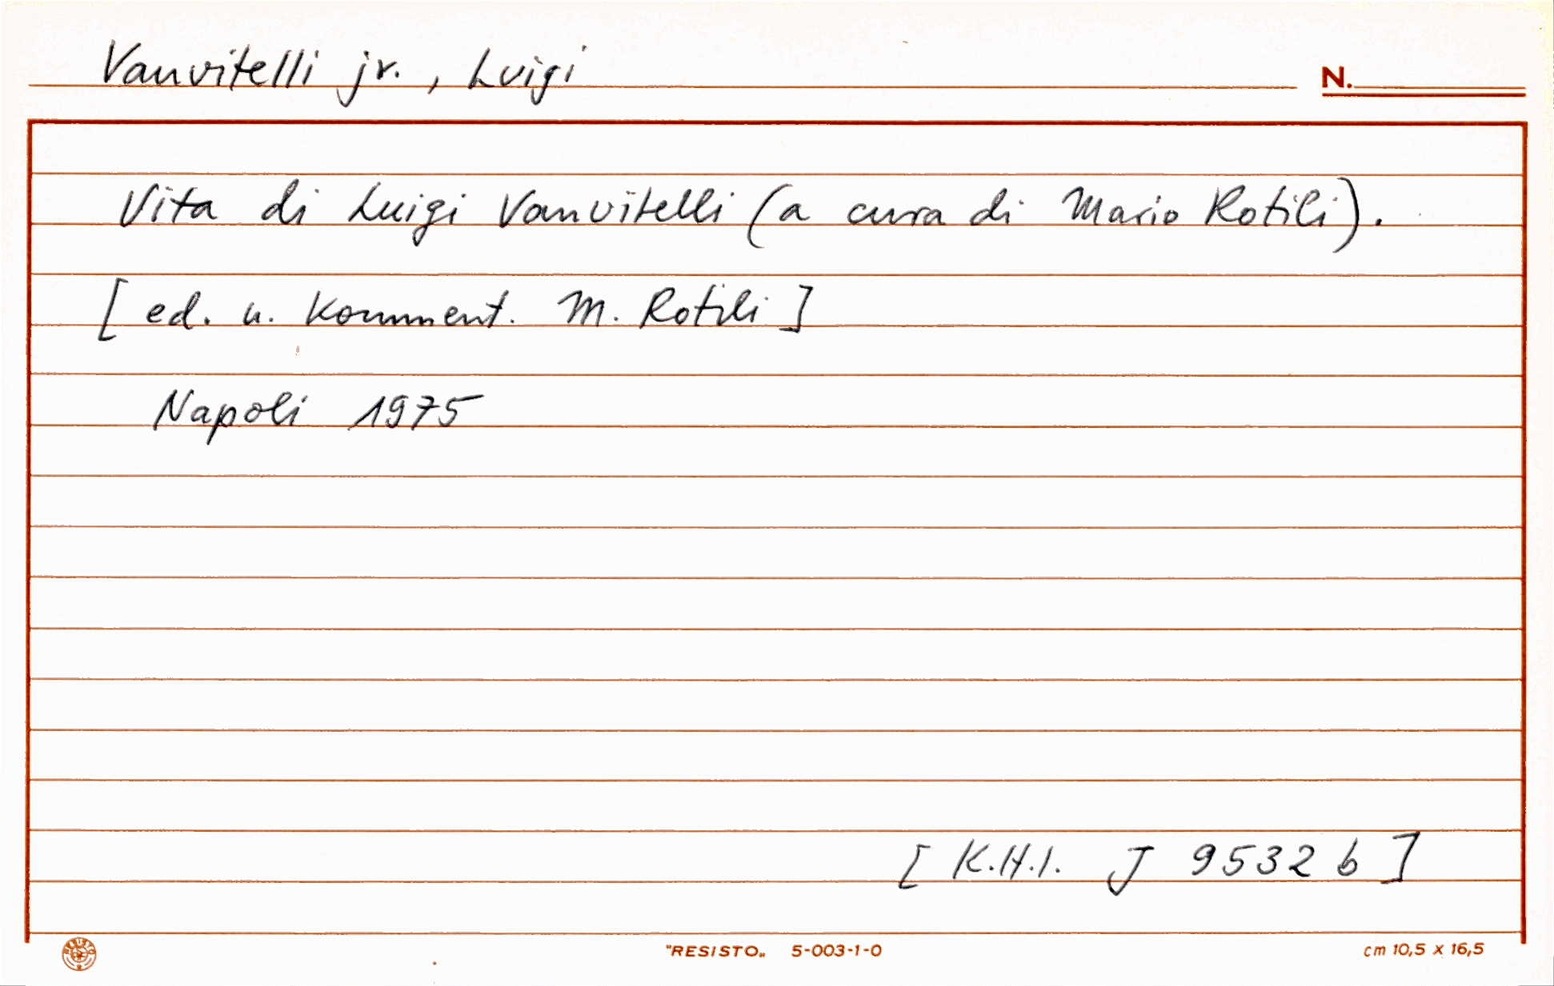 Vanvitelli jr., Luigi
N.
Vita di Luigi Vanvitelli (a cura di Mario Rotili).
[ed. u. Komment. M. Rotili]
Napoli 1975
[K.H.I. J 9532 b]
RESISTO
"RESISTO„ 5-003-1-0
cm 10,5 x 16,5